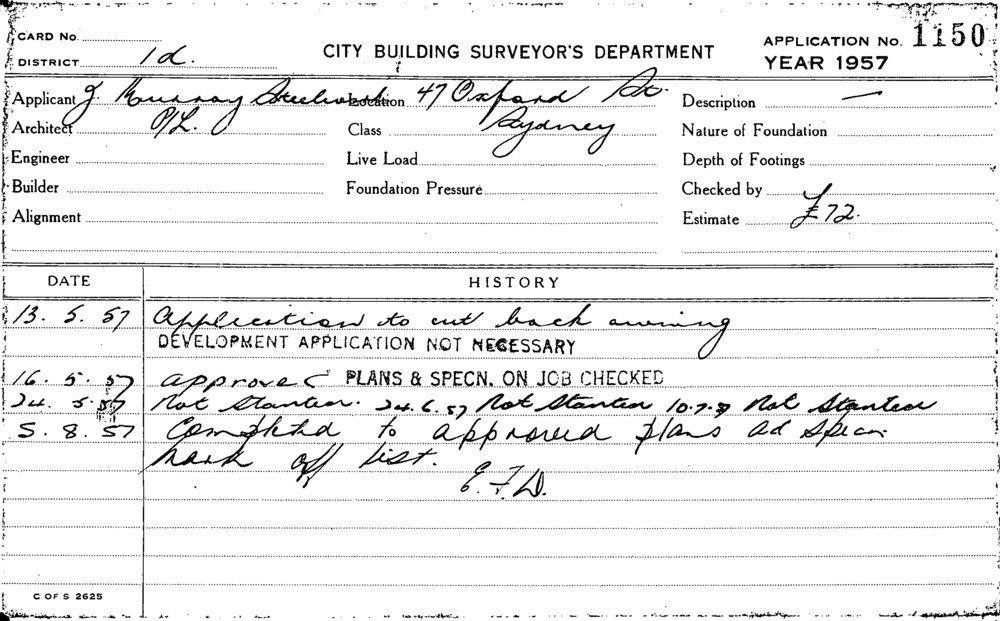 CARD No.
DISTRICT 1d.
CITY BUILDING SURVEYOR'S DEPARTMENT
APPLICATION No. 1150
YEAR 1957
Applicant J. Murray Steelwork Location 47 Oxford St. Description —
Architect P/L. Class Sydney Nature of Foundation
Engineer Live Load Depth of Footings
Builder Foundation Pressure Checked by
Alignment Estimate £72.
DATE HISTORY
13. 5. 57 Application to cut back awning
DEVELOPMENT APPLICATION NOT NECESSARY
16. 5. 57 approved PLANS & SPECN. ON JOB CHECKED
24. 5. 57 Not Started. 24.6.57 Not Started 10.7.57 Not Started
5. 8. 57 Completed to approved plans ad Specn.
mark off list.
E.F.D.
C OF S 2625